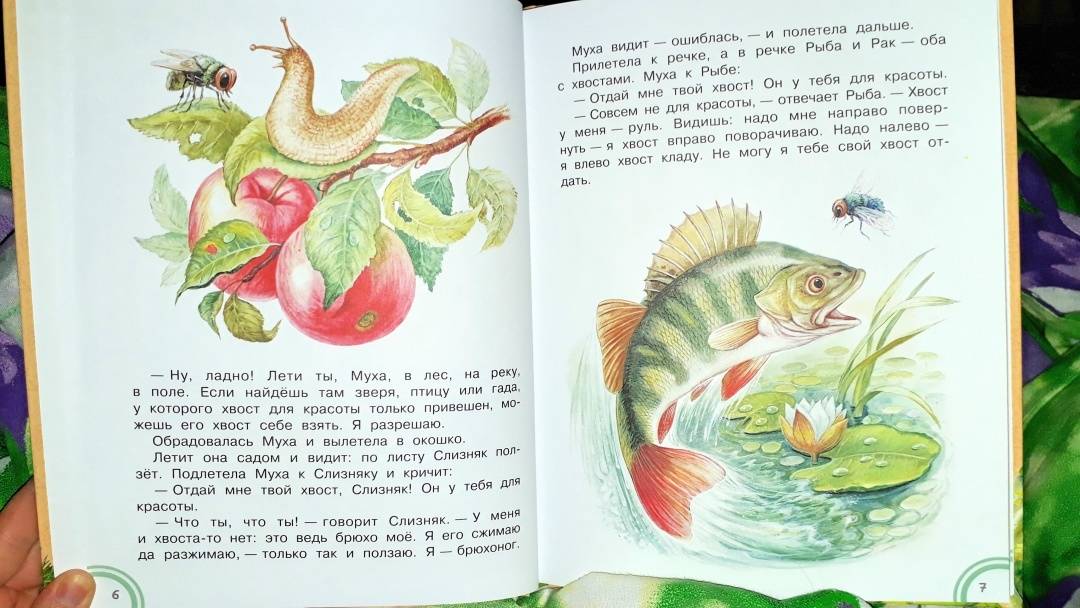 — Ну, ладно! Лети ты, Муха, в лес, на реку,
в поле. Если найдёшь там зверя, птицу или гада,
у которого хвост для красоты только привешен, мо-
жешь его хвост себе взять. Я разрешаю.
Обрадовалась Муха и вылетела в окошко.
Летит она садом и видит: по листу Слизняк пол-
зёт. Подлетела Муха к Слизняку и кричит:
— Отдай мне твой хвост, Слизняк! Он у тебя для
красоты.
— Что ты, что ты! — говорит Слизняк. — У меня
и хвоста-то нет: это ведь брюхо моё. Я его сжимаю
да разжимаю, — только так и ползаю. Я — брюхоног.
6
Муха видит — ошиблась, — и полетела дальше.
Прилетела к речке, а в речке Рыба и Рак — оба
с хвостами. Муха к Рыбе:
— Отдай мне твой хвост! Он у тебя для красоты.
— Совсем не для красоты, — отвечает Рыба. — Хвост
у меня — руль. Видишь: надо мне направо повер-
нуть — я хвост вправо поворачиваю. Надо налево —
я влево хвост кладу. Не могу я тебе свой хвост от-
дать.
7